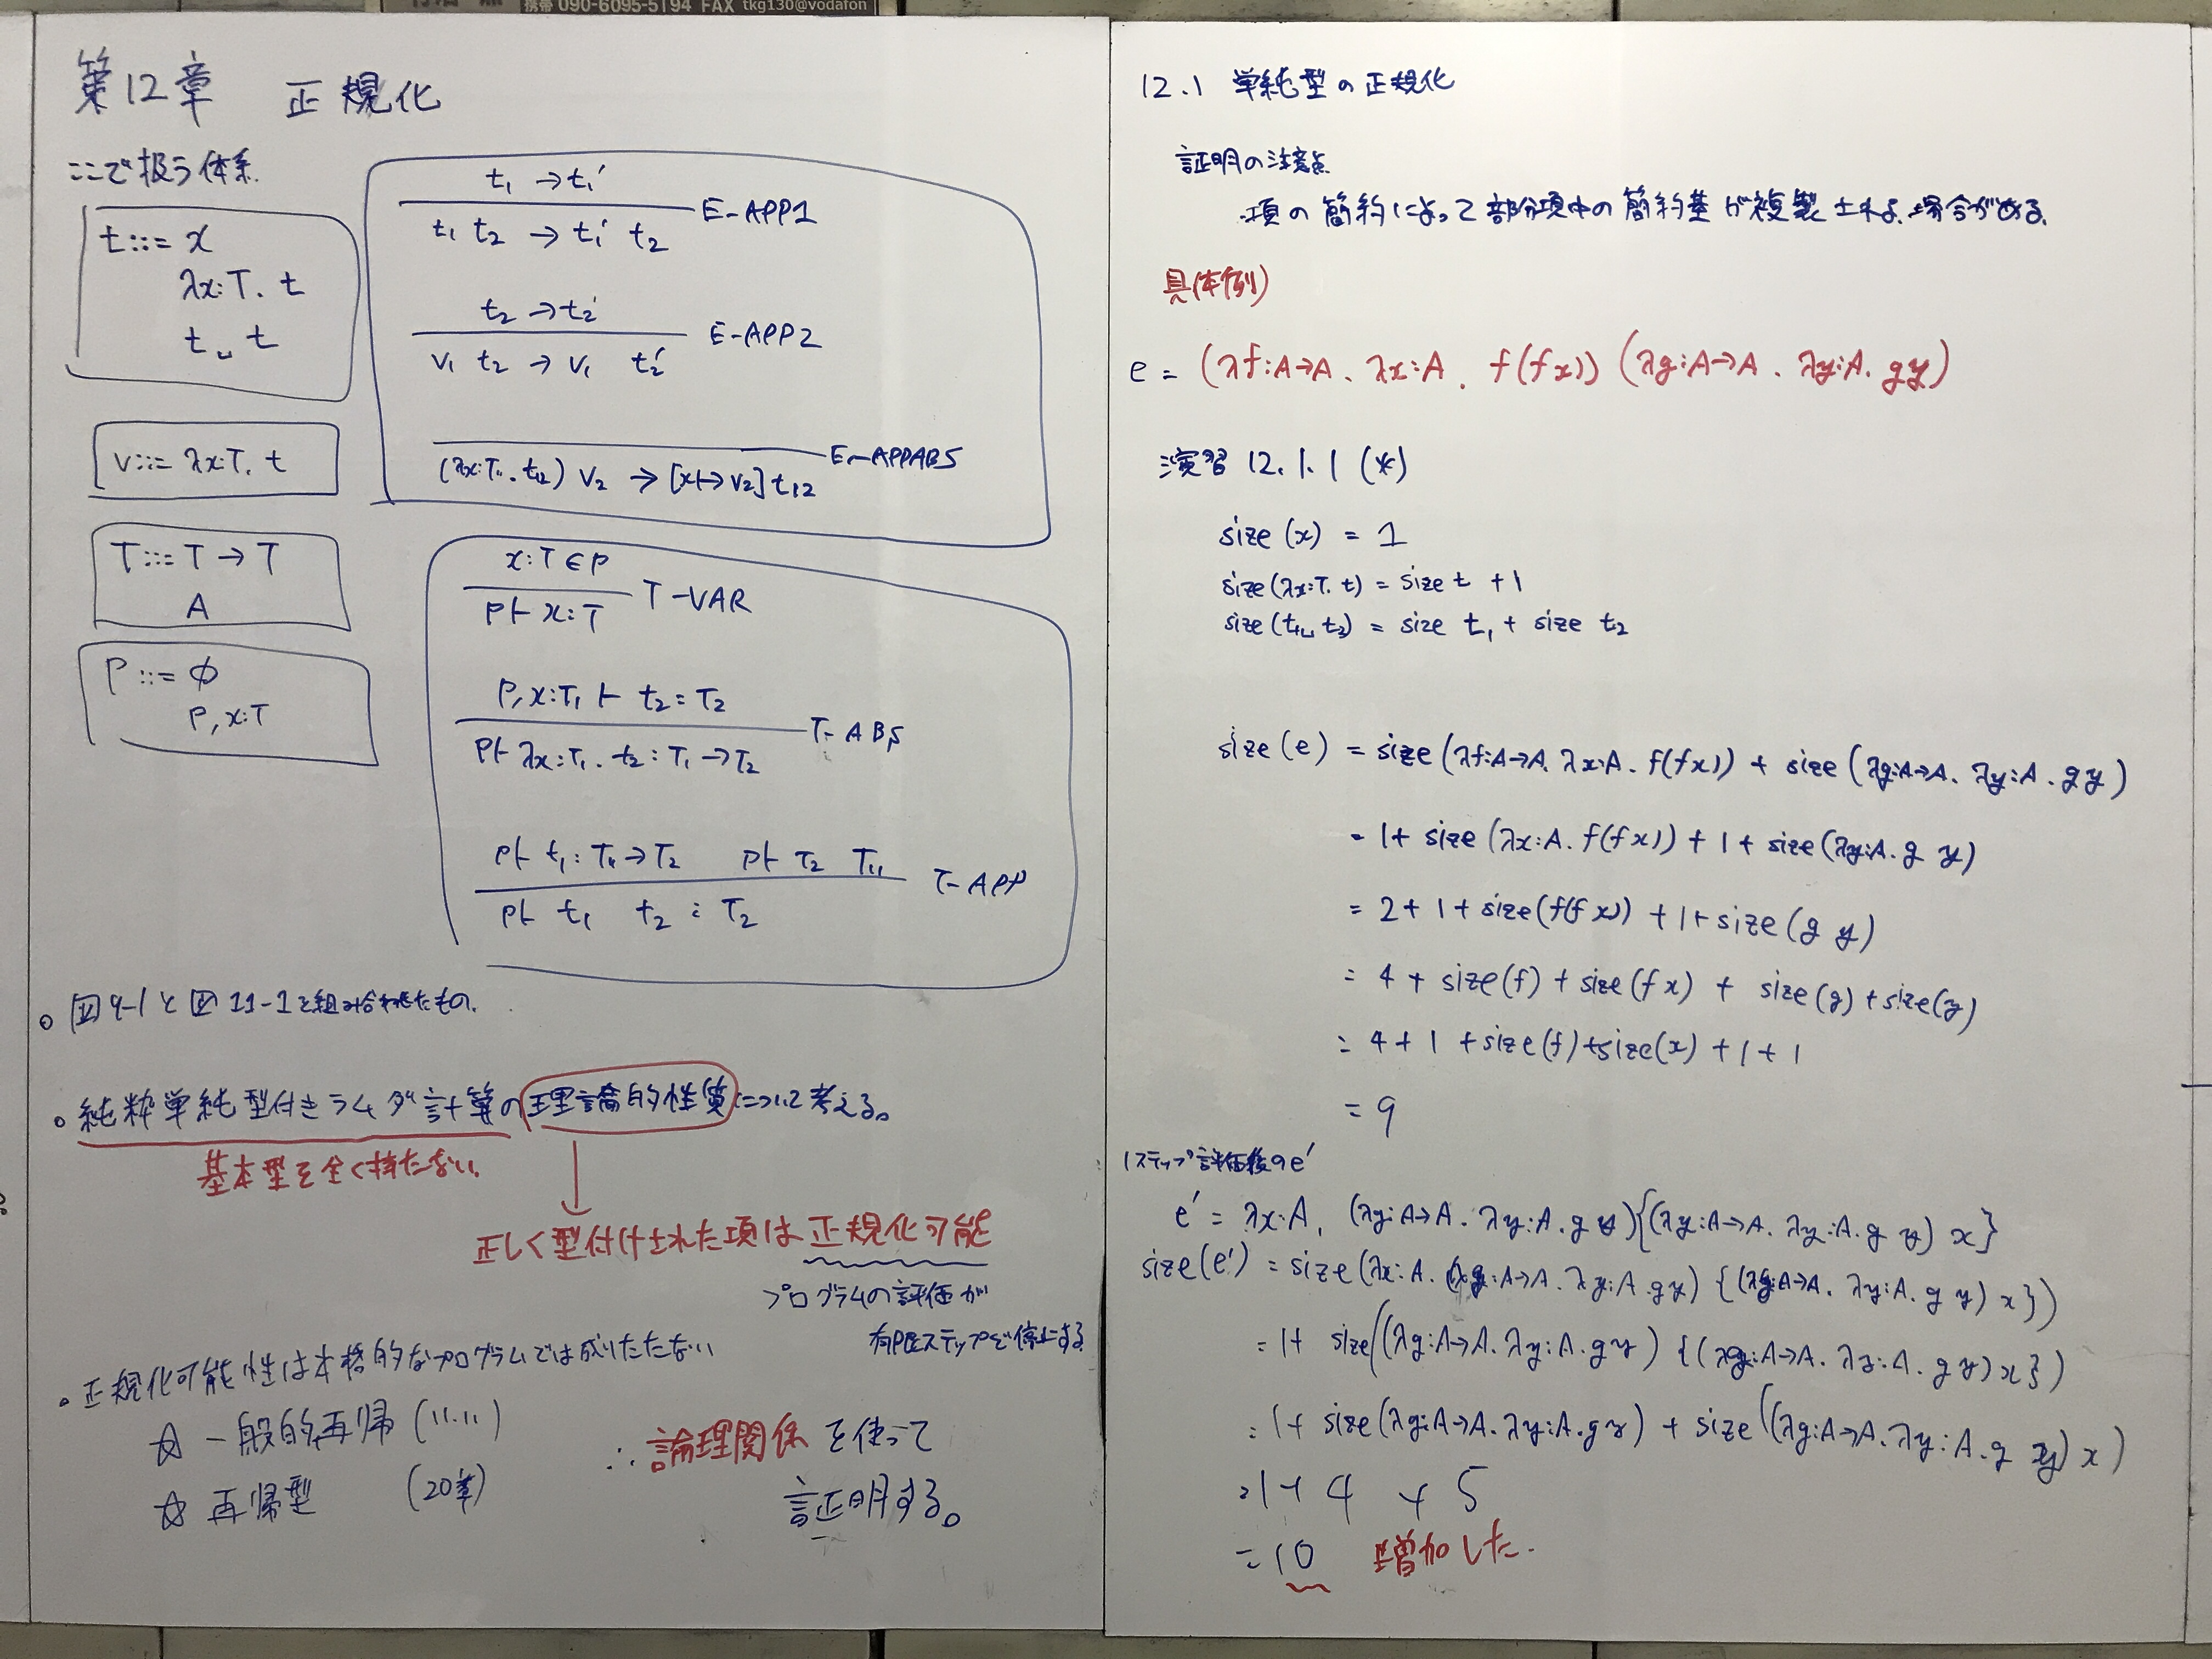 携帯 090-6095-5194 FAX tkg130@vodafon
第12章 正規化
ここで扱う体系
t::= x
λx:T. t
t␣t
v::= λx:T. t
T::= T → T
A
Γ ::= φ
Γ, x:T
t₁ → t₁'
t₁ t₂ → t₁' t₂ E-APP1
t₂ → t₂'
v₁ t₂ → v₁ t₂' E-APP2
(λx:T₁₁. t₁₂) v₂ → [x↦v₂] t₁₂ E-APPABS
x:T ∈ Γ
Γ ⊢ x:T T-VAR
Γ, x:T₁ ⊢ t₂ : T₂
Γ ⊢ λx:T₁. t₂ : T₁ → T₂ T-ABS
Γ ⊢ t₁ : T₁₁ → T₂ Γ ⊢ T₂ T₁₁
Γ ⊢ t₁ t₂ : T₂ T-APP
○ 図9-1と図11-1を組み合わせたもの.
○ 純粋単純型付きラムダ計算の理論的性質について考える。
基本型を全く持たない.
正しく型付けされた項は正規化可能
プログラムの評価が
有限ステップで停止する.
○ 正規化可能性は本格的なプログラムでは成りたたない
☆ 一般的再帰 (11.11)
☆ 再帰型 (20章)
∴ 論理関係を使って
証明する。
12.1 単純型の正規化
証明の注意点
・項の簡約によって部分項中の簡約基が複製される場合がある.
具体例)
e = (λf:A→A. λx:A. f(fx)) (λg:A→A. λy:A. gy)
演習 12.1.1 (*)
size (x) = 1
size(λx:T. t) = size t + 1
size(t₁␣t₂) = size t₁ + size t₂
size (e) = size (λf:A→A. λx:A. f(fx)) + size (λg:A→A. λy:A. gy)
= 1+ size (λx:A. f(fx)) + 1 + size(λy:A. g y)
= 2 + 1 + size(f(fx)) + 1 + size(g y)
= 4 + size(f) + size(fx) + size(g) + size(y)
= 4 + 1 + size(f) + size(x) + 1 + 1
= 9
1ステップ評価後のe'
e' = λx:A. (λg:A→A. λy:A. g y){(λg:A→A. λy:A. g y) x}
size(e') = size(λx:A. (λg:A→A. λy:A. gy) {(λg:A→A. λy:A. g y) x})
= 1+ size((λg:A→A. λy:A. gy) {(λg:A→A. λy:A. g y) x})
= 1+ size(λg:A→A. λy:A. gy) + size((λg:A→A. λy:A. g y) x)
= 1 + 4 + 5
= 10 増加した.